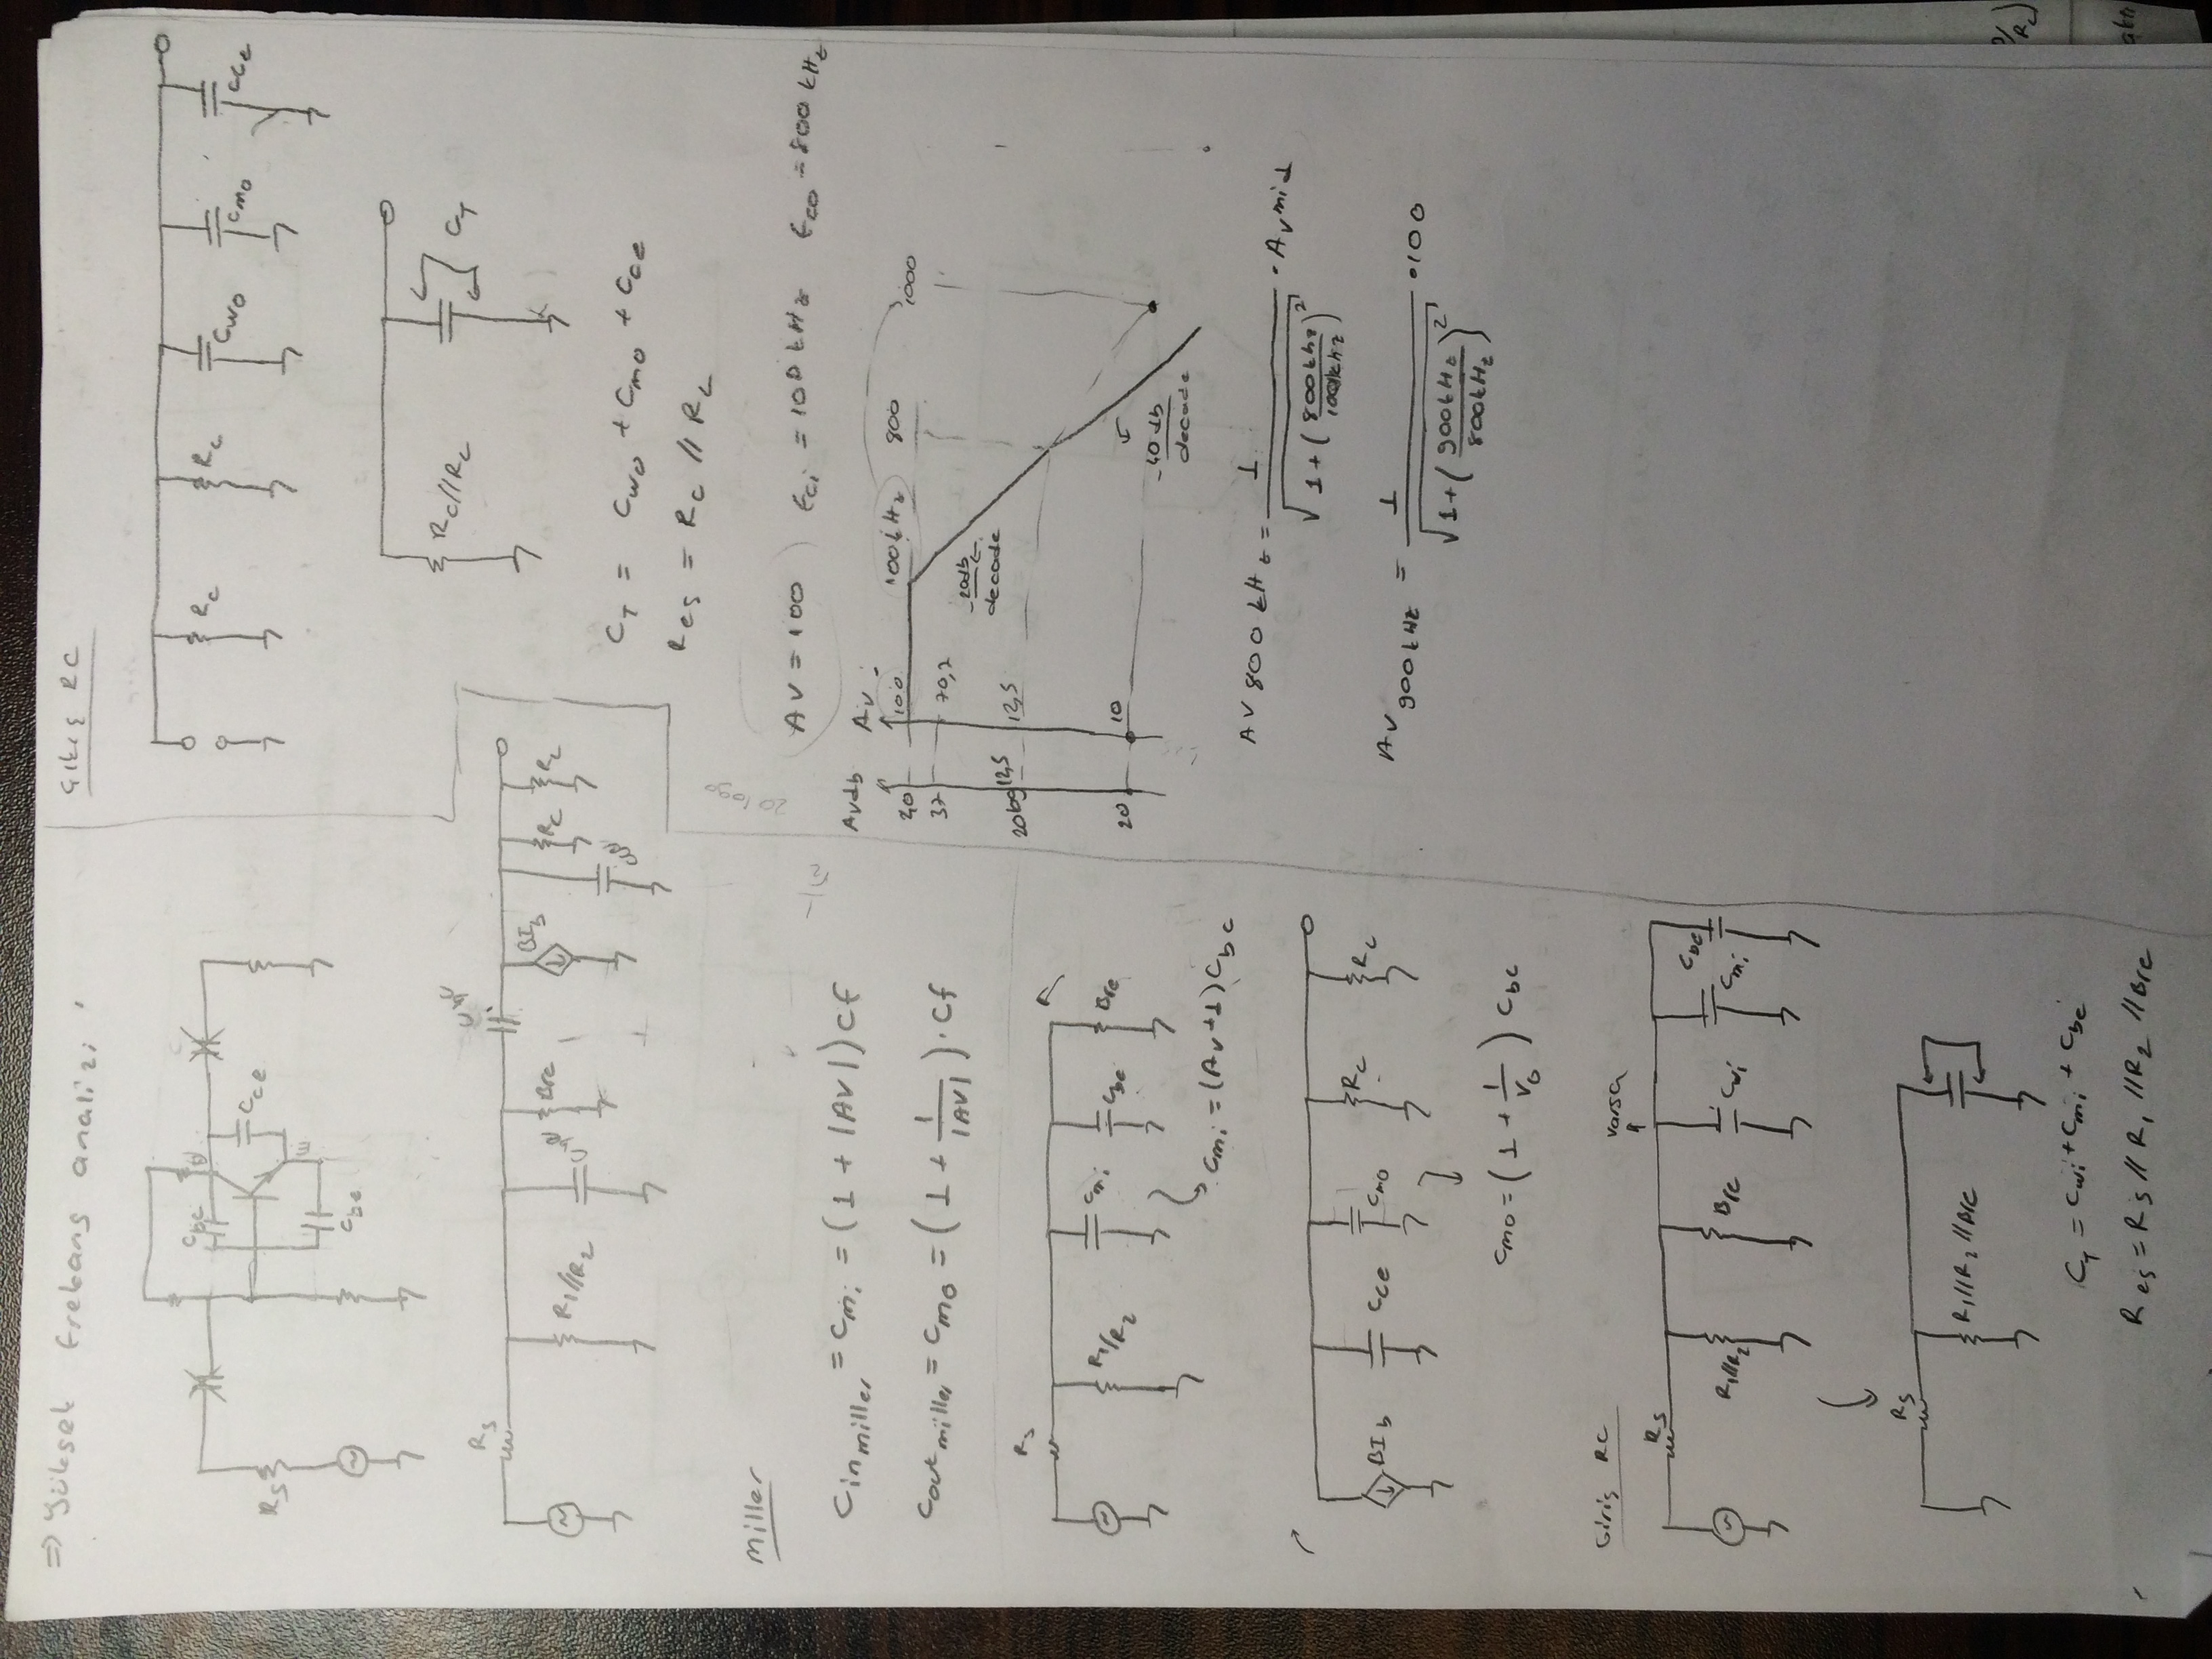 ⇒ Yüksek frekans analizi
Cbc
Cce
Rs
E
Cbe
Rs
Cbc
R1//R2
Cbe
Bre
BIb
Cce
Rc
RL
Miller
Cin miller = Cmi = (1 + |AV|) Cf
Cout miller = Cmo = (1 + 1/|AV|) . Cf
1/√2
Rs
R1//R2
Cmi
Cbe
Bre
Cmi = (Av+1) Cbc
BIb
Cce
Cmo
Rc
RL
Cmo = (1 + 1/Vo) Cbc
Giriş RC
varsa
Rs
R1//R2
Bre
Cwi
Cmi
Cbe
Rs
R1//R2//Bre
CT = Cwi + Cmi + Cbe
Reş = Rs // R1 // R2 // Bre
Çıkış RC
Rc
RL
Cwo
Cmo
Cce
Rc//RL
CT
CT = Cwo + Cmo + Cce
Reş = Rc // RL
20 log
AV = 100
fci = 100 kHz
fco = 800 kHz
Avdb
Av
40
100
100kHz
800
1000
37
70,7
-20db/decade
20log12,5
12,5
20
10
-40db/decade
AV 800 kHz = 1/√(1 + (800khz/100khz)²) . Avmid
AV 900kHz = 1/√(1 + (900kHz/800kHz)²) . 100